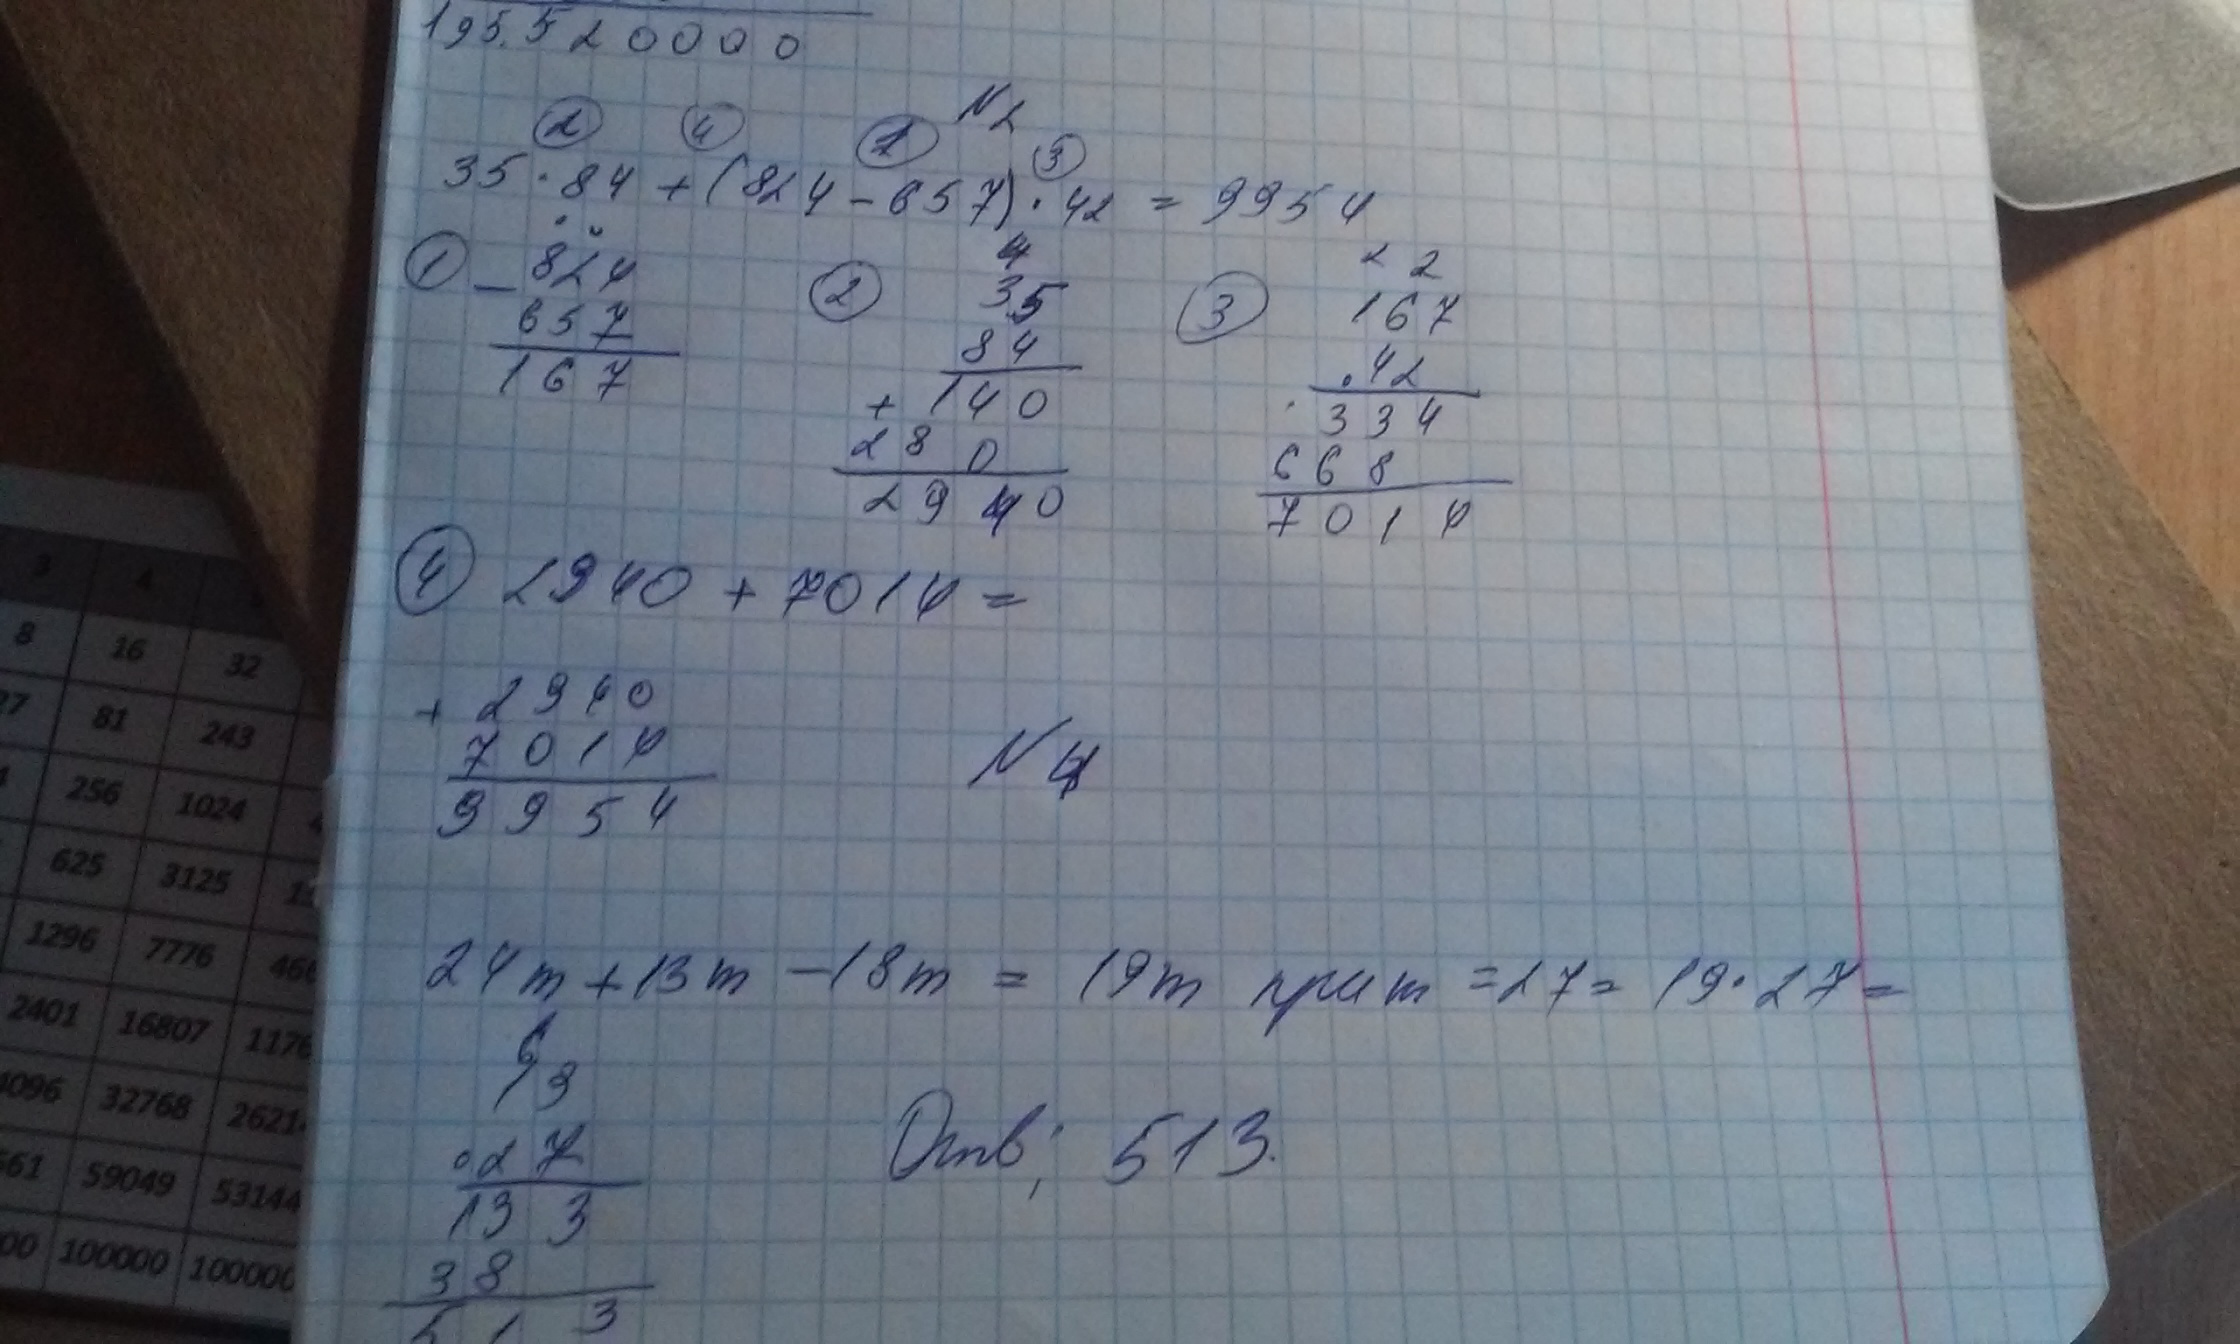 195.520000
N2
② ④ ① ③
35 · 84 + (824 - 657) · 42 = 9954
① - 824
657
167
② 4
35
84
+ 140
280
2940
③ 2 2
167
· 42
334
668
7014
④ 2940 + 7014 =
+ 2940
7014
9954
N4
24m + 13m - 18m = 19m при m = 27 = 19 · 27 =
6
19
· 27
133
38
513
Отв; 513.
3 4
8 16 32
27 81 243
256 1024
625 3125
1296 7776
2401 16807
4096 32768
59049
100000